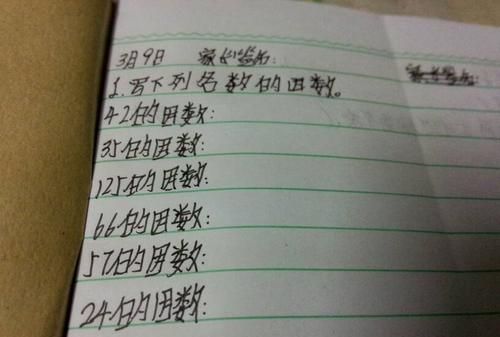 3月9日 家长签名:
1.写下列各数的因数。
42的因数:
35的因数:
125的因数:
66的因数:
57的因数:
24的因数: